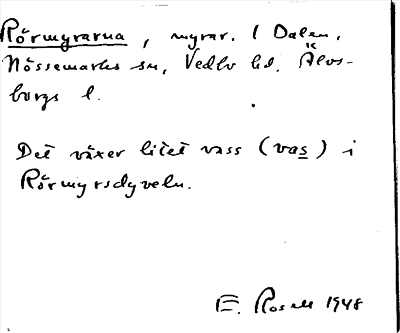 Rörmyrarna, myrar. 1 Dalen,
Nössemarks sn, Vedbo hd. Älvs-
borgs l.
Det växer litet vass (vas) i
Rörmyrsdyveln.
E. Rosell 1948